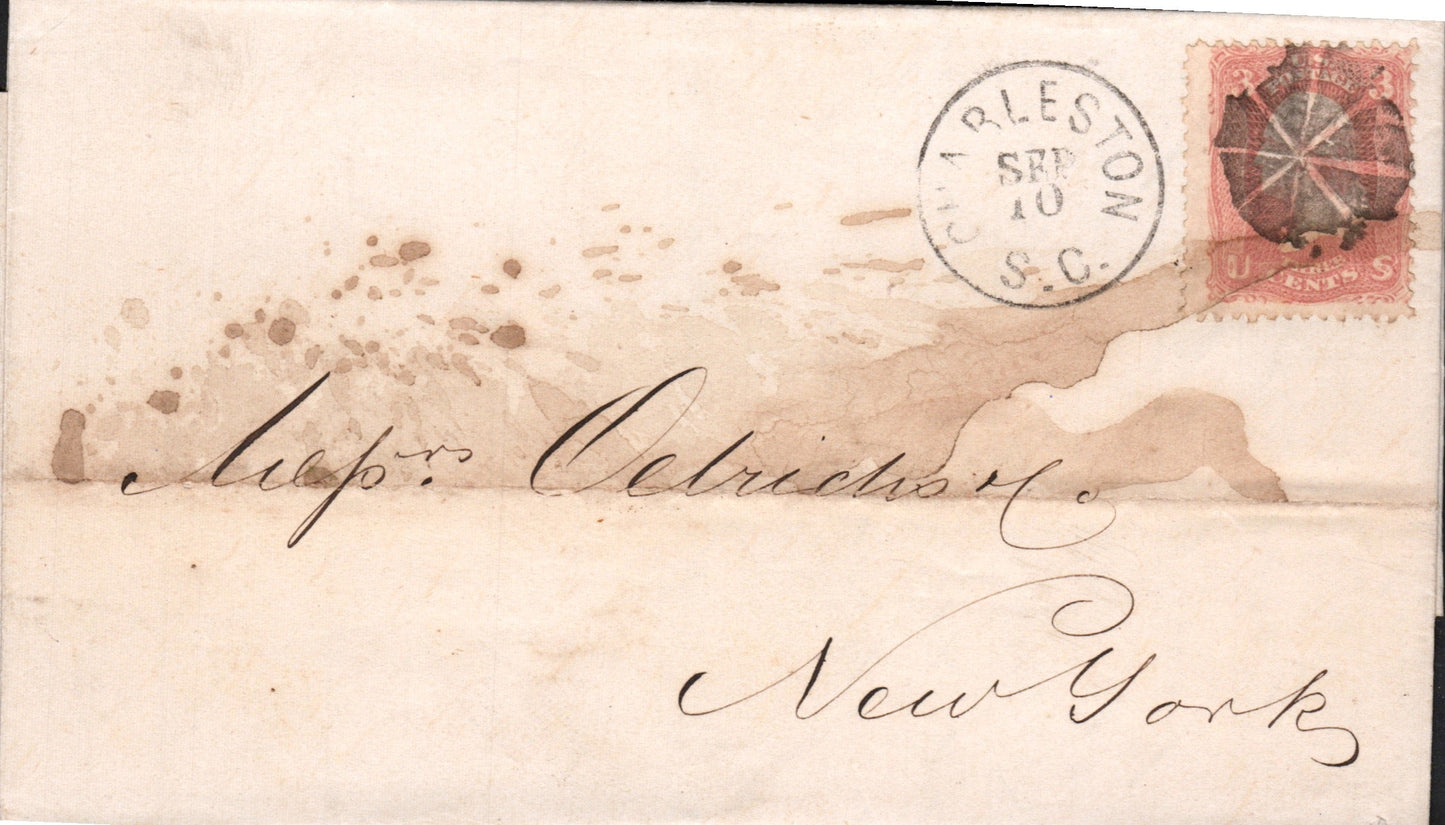 CHARLESTON
SEP
10
S.C.
3 U.S. 3
POSTAGE
U CENTS S
Messrs. Oelrichs & Co
New York